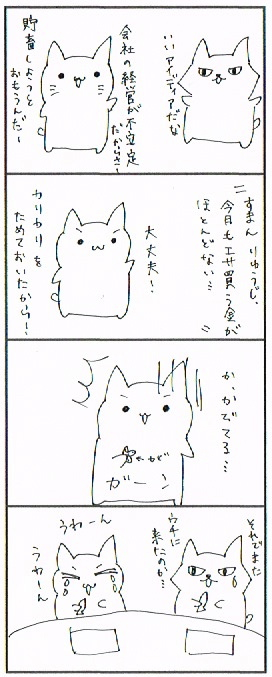 いいアイディアだな
会社の経営が不安定
だからさー
貯蓄しようと
おもうんだー
=すまん りゅうじ、
今日もエサ買う金が
ほとんどない… =
大丈夫!
カリカリを
ためておいたからー!
か、かびてる…
ガーン
それでまた
ウチに
来たのか…
うわーん
うわーん